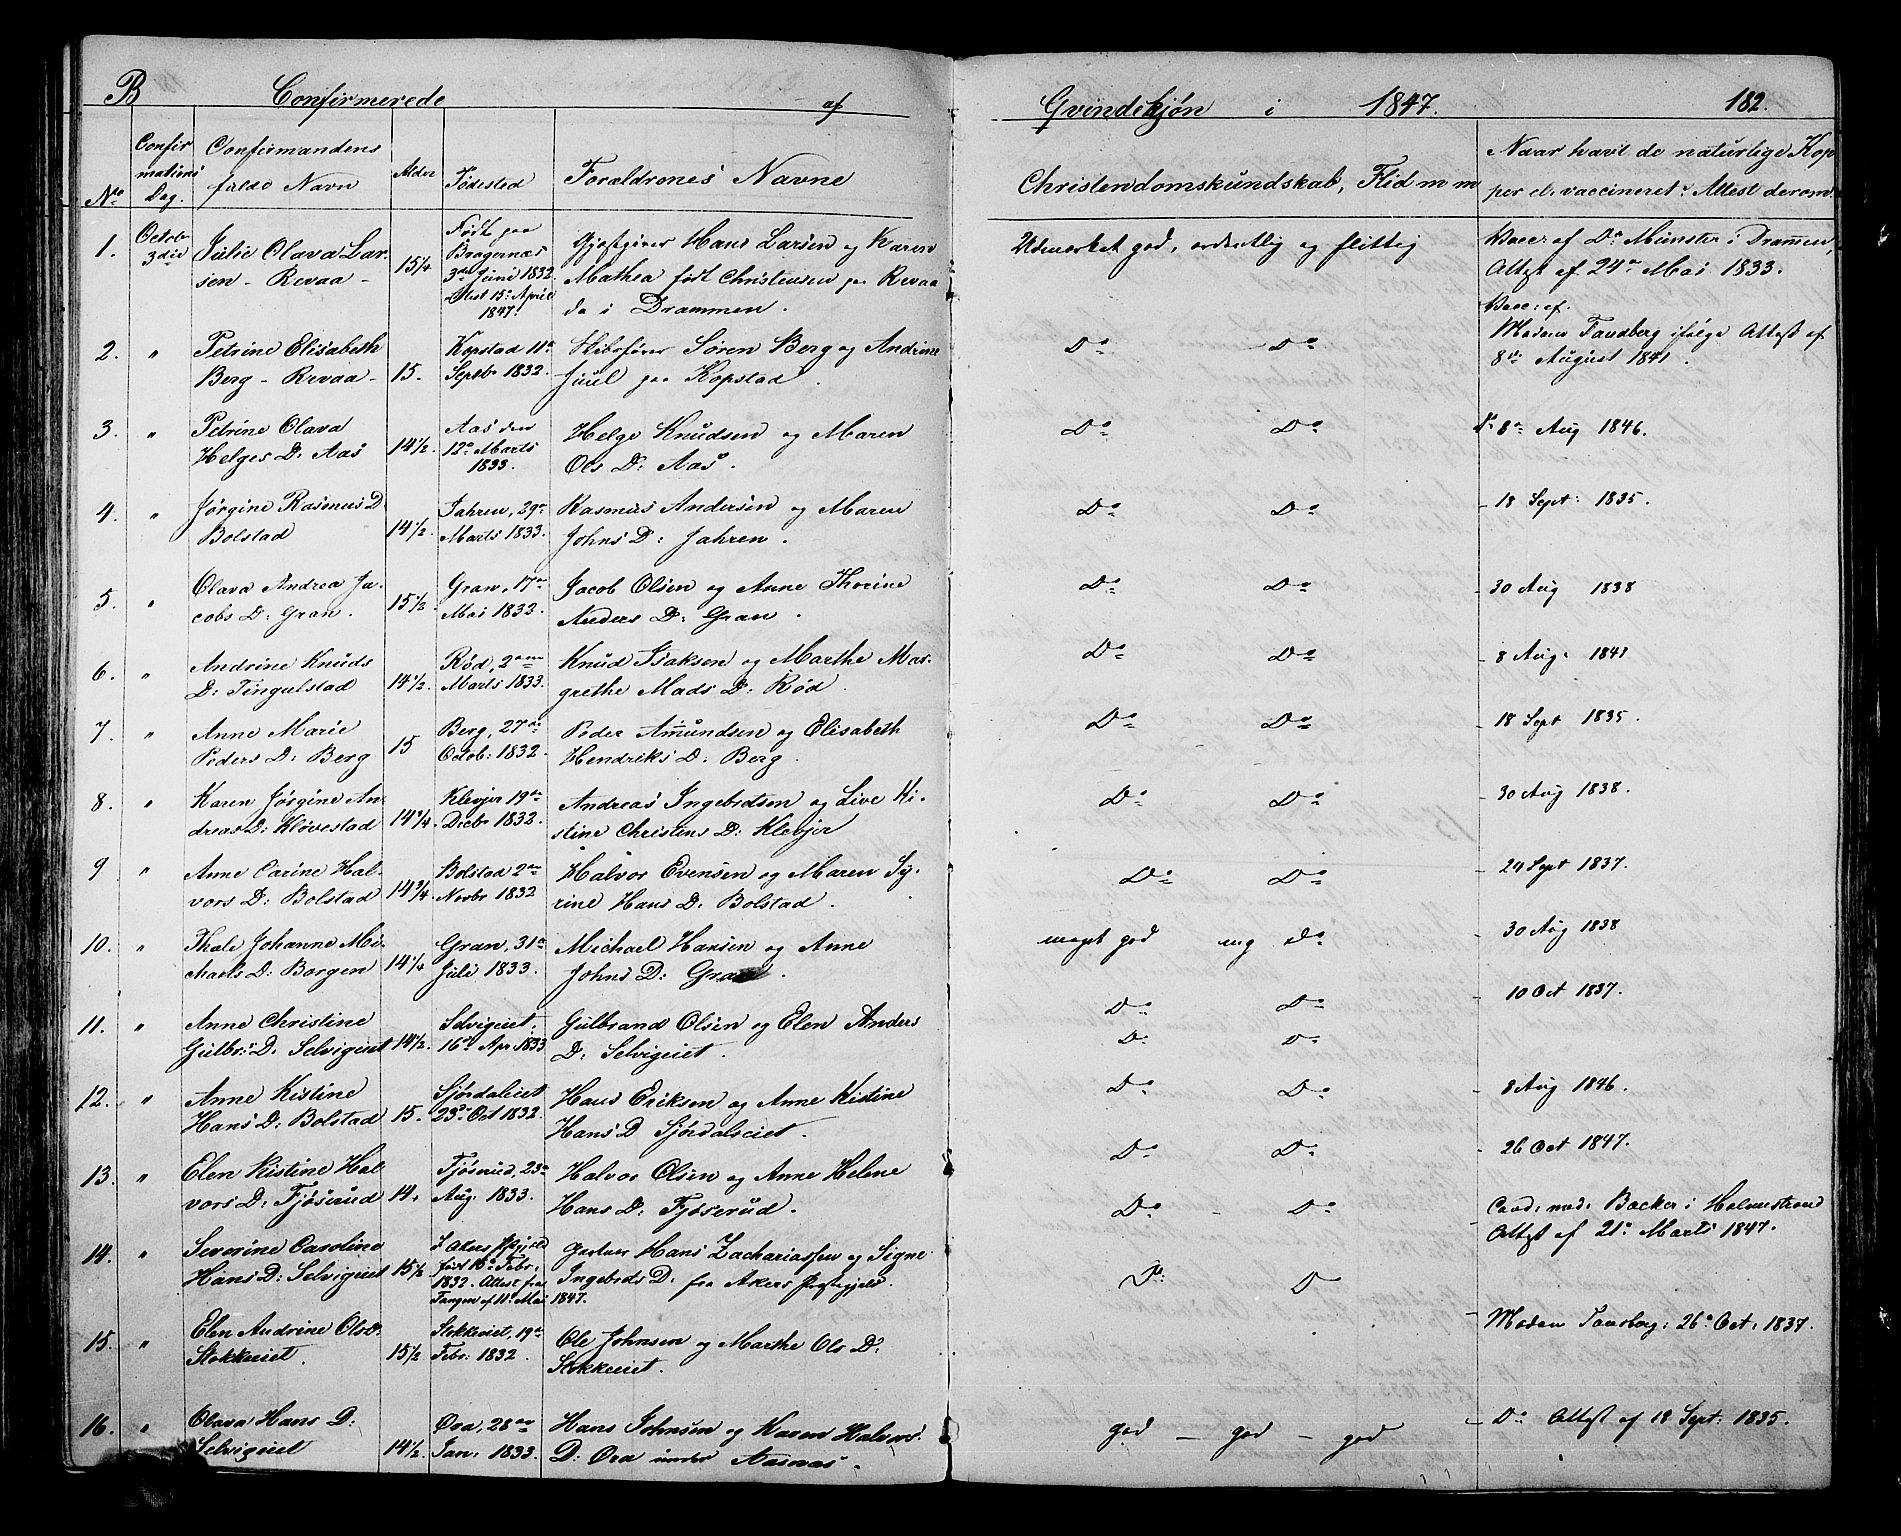 B Confirmerede af Qvindekjøn i 1847. 182.
No Confirmations Dag. Confirmandens fulde Navn Alder Fødested Forældrenes Navne Christendomskundskab, Flid m m Naar havt de naturlige Kopper el. vaccineret. Attest derom.
1. Octobr 3die Julie Olava Lar- 15 1/4 Født paa Gjæstgiver Hans Larsen og Karen Udmærket god, ordentlig og flittig Vacc: af Dr Münster i Drammen,
sen - Revaa - Bragernæs Mathea født Christensen paa Revaa Attest af 24de Mai 1833.
3die Juni 1832. da i Drammen.
Attest 15de April
1847.
2. " Petrine Elisabeth 15. Kopstad 11te Skibsfører Søren Berg og Andrine Do Do Vacc: af.
Berg - Revaa - Septbr 1832. Juul paa Kopstad. Madam Tandberg ifølge Attest af
8de August 1841.
3. " Petrine Olava 14 1/2. Aas den Helge Knudsen og Maren Do Do Do 8de Aug 1846.
Helges D: Aas 12te Marts Ols D: Aas.
1833.
4. " Jørgine Rasmus D 14 1/2. Jahren, 29de Rasmus Andersen og Maren Do Do - 18 Sept: 1835.
Bolstad Marts 1833. Johns D: Jahren.
5. " Olava Andrea Ja- 15 1/2. Gran, 17de Jacob Olsen og Anne Thorine Do Do - 30 Aug 1838
cobs D: Gran. Mai 1832. Anders D: Gran.
6. " Andrine Knuds 14 1/2. Rød, 2den Knud Isaksen og Marthe Mar- Do Do - 8 Aug. 1841
D: Tingulstad Marts 1833. grethe Mads D: Rød.
7. " Anne Marie 15 Berg, 27de Peder Amundsen og Elisabeth Do Do - 18 Sept 1835.
Peders D: Berg Octob: 1832. Hendriks D: Berg.
8. " Karen Jørgine An- 14 3/4. Klevjer 19de Andreas Ingebretsen og Live Ki- Do Do - 30 Aug 1838.
dreas D: Kløvestad Decbr 1832. stine Christens D: Klevjer
9 " Anne Carine Hal- 14 3/4. Bolstad 2den Halvor Evensen og Maren Sy- Do Do - 24 Sept 1837.
vors D: Bolstad Novbr 1832 rine Hans D: Bolstad.
10. " Thale Johanne Mi- 14 1/4 Gran, 31te Michael Hansen og Anne meget god mg do - 30 Aug 1838
chaels D: Borgen Juli 1833. Johns D: Gran.
11. " Anne Christine 14 1/2. Selvigeiet, Gulbrand Olsen og Elen Anders Do Do - 10 Oct 1837.
Gulbr: D: Selvigeiet 16de Apr. 1833 D: Selvigeiet. D: D-
12. " Anne Kistine 15. Sjørdaleiet Hans Eriksen og Anne Kistine Do Do - 8 Aug 1846.
Hans D: Bolstad 23de Oct 1832. Hans D Sjørdalseiet.
13. " Elen Kistine Hal- 14. Fjøserud, 23de Halvor Olsen og Anne Helene Do Do - 26 Oct 1847.
vors D: Fjøserud Aug. 1833. Hans D: Fjøserud.
14. " Severine Caroline 15 1/2 I Akers Præstgjeld Gartner Hans Zachariassen og Signe Do - Do - Cand. med. Backer i Holmestrand
Hans D: Selvigeiet født 15de Febr. Ingebrets D: fra Akers Præstegjeld. Attest af 21de Marts 1847.
1832. Attest fra
Tangen af 11te Mai 1847.
15. " Elen Andrine Ols D. 15 1/2 Stokkeeiet, 19de Ole Johnsen og Marthe Ols D: Do: D - Madam Tandberg: 26de Oct. 1837.
Stokkeeiet. Febr: 1832. Stokkeeiet.
16. " Olava Hans D: 14 1/2. Øra, 28de Hans Johnsen og Karen Halvors god - god - god - Do Attest af 18 Sept: 1835.
Selvigeiet Jan: 1833. D: Øra under Aasnæs.